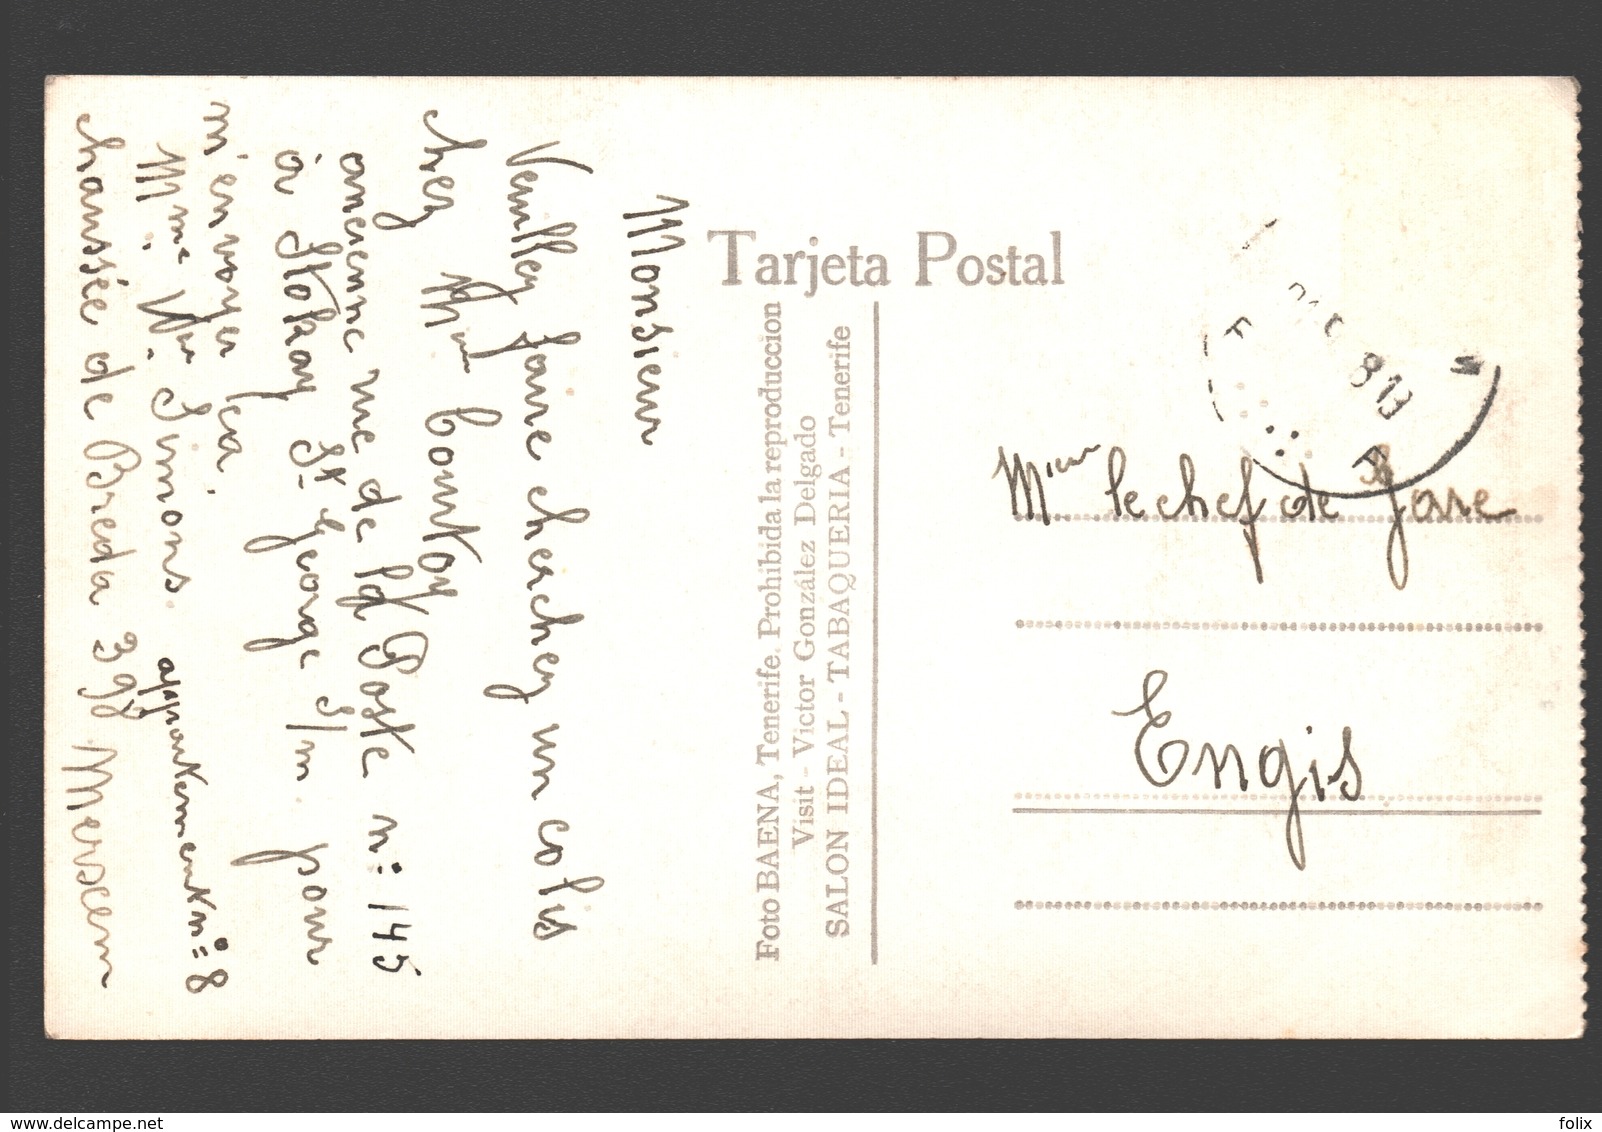 Tarjeta Postal
Monsieur
Veuillez faire cherchez un colis
chez Mme Countoy
ancienne rue de la Poste n: 145
à Stokay St George s/m pour
m'envoyer ça.
Mme Vve Simons appartement n= 8
chaussée de Breda 398 Merxem
Foto BAENA, Tenerife. Prohibida la reproduccion
Visit - Victor González Delgado
SALON IDEAL - TABAQUERIA - Tenerife
8 13
Mieur le chef de gare
Engis
delcampe.net
folix